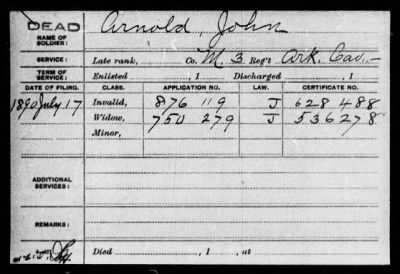 DEAD Arnold, John
NAME OF SOLDIER:
SERVICE: Late rank, Co. M, 3 Reg't Ark. Cav.
TERM OF SERVICE: Enlisted , 1 Discharged , 1
DATE OF FILING. CLASS. APPLICATION NO. LAW. CERTIFICATE NO.
1890 July 17 Invalid, 876 119 J 628 488
Widow, 750 279 J 536278
Minor,
ADDITIONAL SERVICES:
REMARKS:
Died , 1 , at